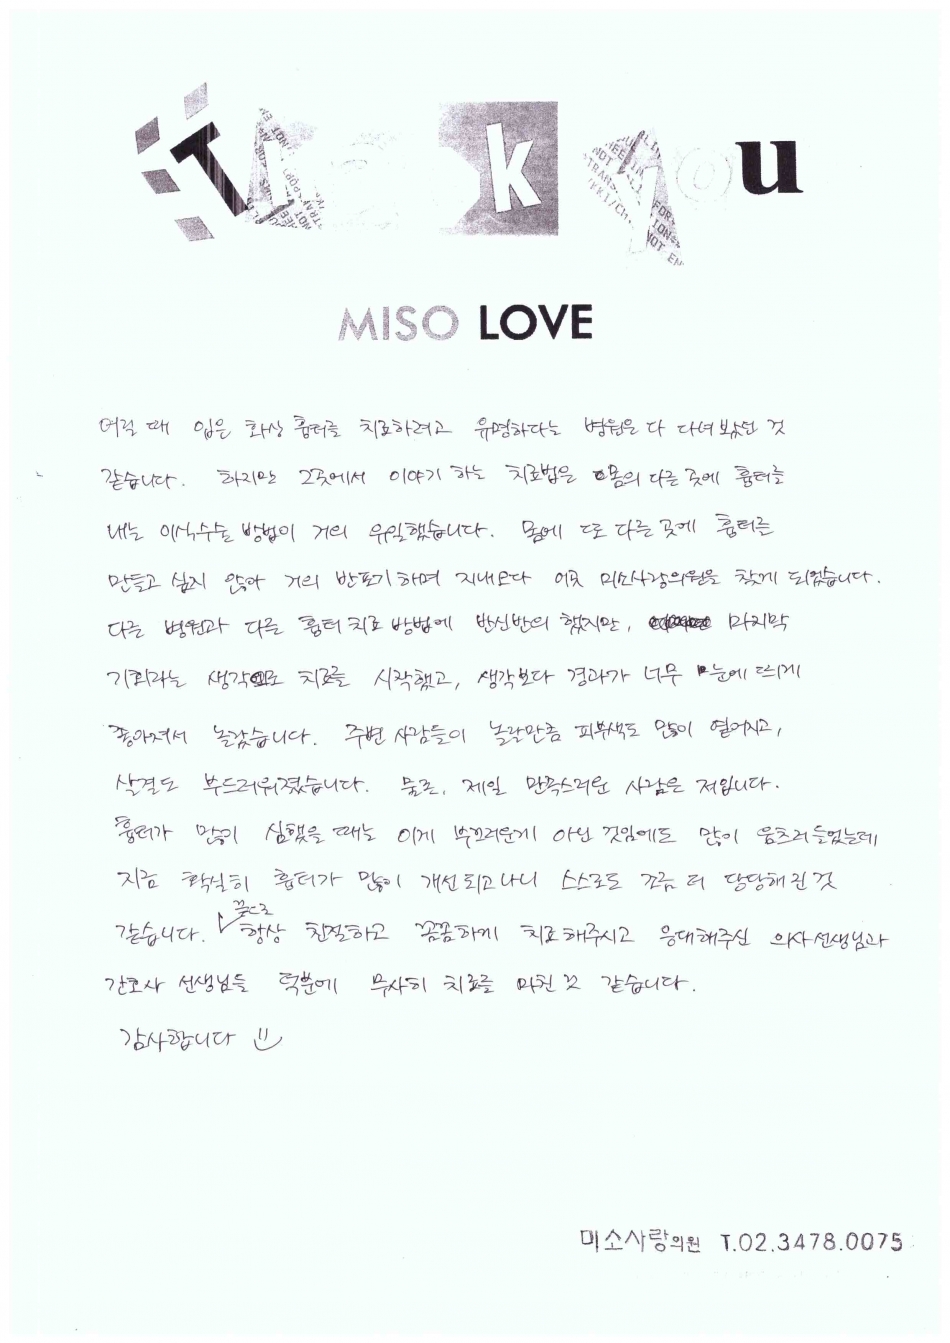 Thank you
MISO LOVE
어릴 때 입은 화상 흉터를 치료하려고 유명하다는 병원은 다 다녀 봤던 것
같습니다. 하지만 그곳에서 이야기 하는 치료법은 몸의 다른 곳에 흉터를
내는 이식수술 방법이 거의 유일했습니다. 몸에 또 다른 곳에 흉터를
만들고 싶지 않아 거의 반포기하며 지내오다 이곳 미소사랑의원을 찾게 되었습니다.
다른 병원과 다른 흉터 치료 방법에 반신반의 했지만, 마지막
기회라는 생각으로 치료를 시작했고, 생각보다 경과가 너무 눈에 띄게
좋아져서 놀랐습니다. 주변 사람들이 놀랄만큼 피부색도 많이 옅어지고,
살결도 부드러워졌습니다. 물론, 제일 만족스러운 사람은 저입니다.
흉터가 많이 심했을 때는 이게 부끄러운게 아닌 것임에도 많이 움츠러들었는데
지금 확실히 흉터가 많이 개선되고나니 스스로도 조금 더 당당해진 것
같습니다. 끝으로 항상 친절하고 꼼꼼하게 치료해주시고 응대해주신 의사선생님과
간호사 선생님들 덕분에 무사히 치료를 마친 것 같습니다.
감사합니다
미소사랑의원 T.02.3478.0075